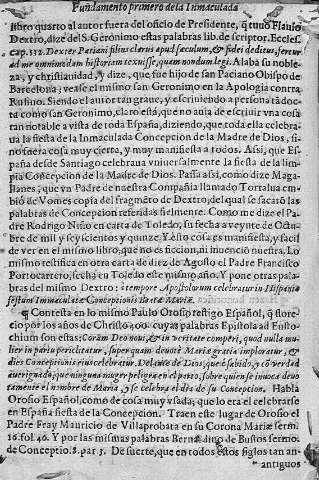 Fundamento primero de la Inmaculada
libro quarto al autor fuera del oficio de Presidente, q̃ tuuo Flauio
Dextro, dize del S. Geronimo estas palabras lib. de scriptor. Eccles.
cap. 132. Dexter Patiani filius clarus apud sæculum, & fidei deditus, fertur
ad me omnimodam historiam texuisse, quam nondum legi. Alaba su noble-
za, y christiandad, y dize, que fue hijo de san Paciano Obispo de
Barcelona; vease el mismo san Geronimo en la Apologia contra
Rufino. Siendo el autor tan graue, y escriuiendo a persona tã doc
ta como san Geronimo, claro està, que no auia de escriuir vna cosa
tan notable a vista de toda España, diziendo, que toda ella celebra-
ua la fiesta de la Inmaculada Concepcion de la Madre de Dios, si
no fuera cosa muy cierta, y muy manifiesta a todos. Assi, que Es-
paña desde Santiago celebraua vniuersalmente la fiesta de la lim-
pia Concepcion de la Madre de Dios. Passa assi, como dize Maga-
llanes, que vn Padre de nuestra Compañia llamado Torralua em-
biò de Vomes copia del fragmẽto de Dextro, del qual se sacarõ las
palabras de Concepcion referidas fielmente. Como me dize el Pa-
dre Rodrigo Niño en carta de Toledo, su fecha a veynte de Octu-
bre de mil y seyscientos y quinze. Y esto cosa es manifiesta, y facil
de ver en el mismo libro, que no es ficcion, ni inuencion nuestra. Lo
mismo rectifica en otra carta de diez de Agosto el Padre Francisco
Portocarrero, fecha en Toledo este mismo año. Y pone otras pala-
bras del mismo Dextro: à tempore Apostolorum celebratur in Hispania
festum Immaculatæ Conceptionis Beatæ Mariæ.
¶ Contesta en lo mismo Paulo Orosio testigo Español, q̃ flore-
cio por los años de Christo 400. cuyas palabras Epistola ad Eusto-
chium son estas: Coram Deo noui, & in veritate comperi, quod nulla mu-
lier in partu periclitatur, si per quam deuotè Mariæ gratia imploratur, &
dies Conceptionis eius celebratur. Delante de Dios, que è sabido, y cõ verdad
aueriguado, que ninguna muger peligra en el parto, sobre quien se inuoca deuo
tamente el nombre de Maria, y se celebra el dia de su Concepcion. Habla
Orosio Español, como de cosa muy vsada; que lo era el celebrarse
en España fiesta de la Concepcion. Traen este lugar de Orosio el
Padre Fray Mauricio de Villaprobata en su Corona Mariæ serm.
16. fol. 40. Y por las mismas palabras Bernardino de Bustos sermo.
de Conceptio. 8. par 3. De suerte, que en todos estos siglos tan an-
antiguos